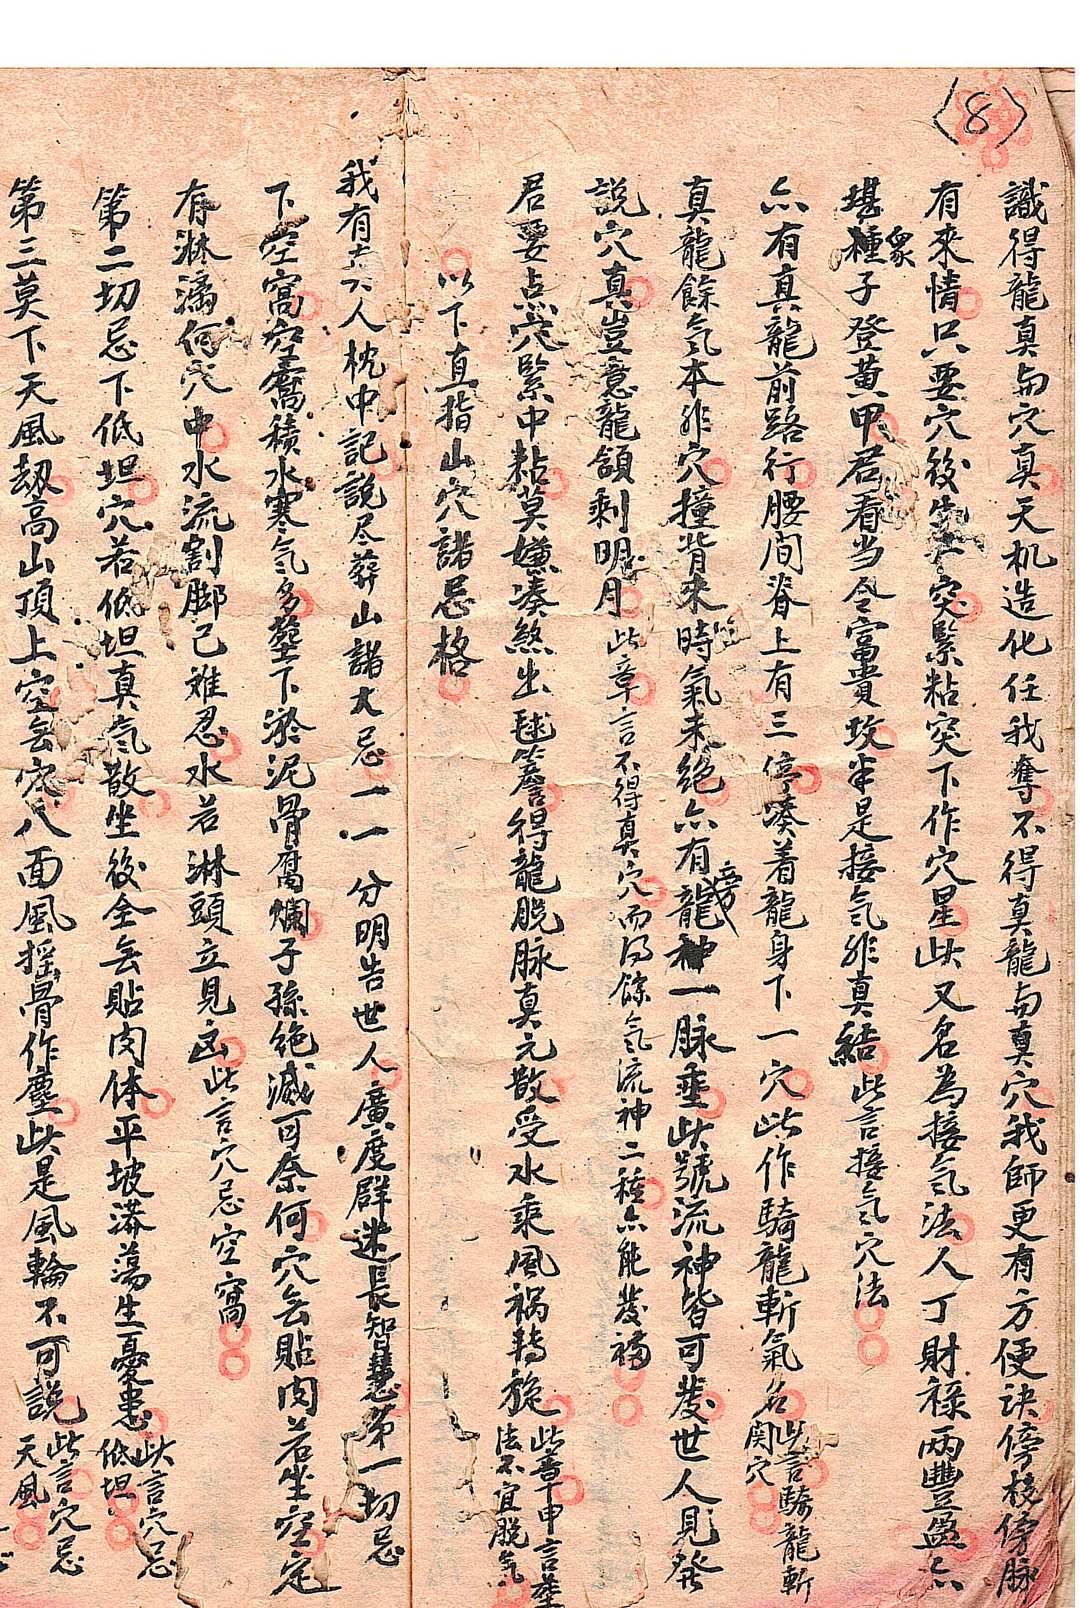 〈8〉
識得龍真与穴真天机造化任我奪不得真龍与真穴我師更有方便訣傍枝傍脉
有來情只要穴後生突緊粘突下作穴星此又名為接氣法人丁財祿兩豐盈亦
堪種子登黄甲君看当今富貴坟半是接氣非真結此言接氣穴法
众
亦有真龍前路行腰间脊上有三停凑着龍身下一穴此作騎龍斬氣名此言騎龍斬
関穴
真龍餘气本非穴撞背来時氣未绝亦有龍神一脉垂此號流神皆可發世人見發
旁
説穴真豈意龍頷剩明月此章言不得真穴而得餘气流神二種亦能發福
君要点穴緊中粘莫嫌凑煞出毬簷得龍脱脉真元散受水乘风祸轉旋此章申言塟
法不宜脱气
以下直指山穴諸忌格
我有古人枕中記説尽葬山諸大忌一一分明告世人廣度群迷長智慧第一切忌
下空窩空窩積水寒气多塟下淤泥骨腐爛子孫绝滅可奈何穴无貼肉若坐空定
有淋漓何穴中水流割脚已难忍水若淋頭立見凶此言穴忌空窩
第二切忌下低坦穴若低坦真气散坐後全无貼肉体平坡漭蕩生憂患此言穴忌
低坦
第三莫下天風刼高山頂上空无穴八面風摇骨作塵此是風輪不可説此言穴忌
天風